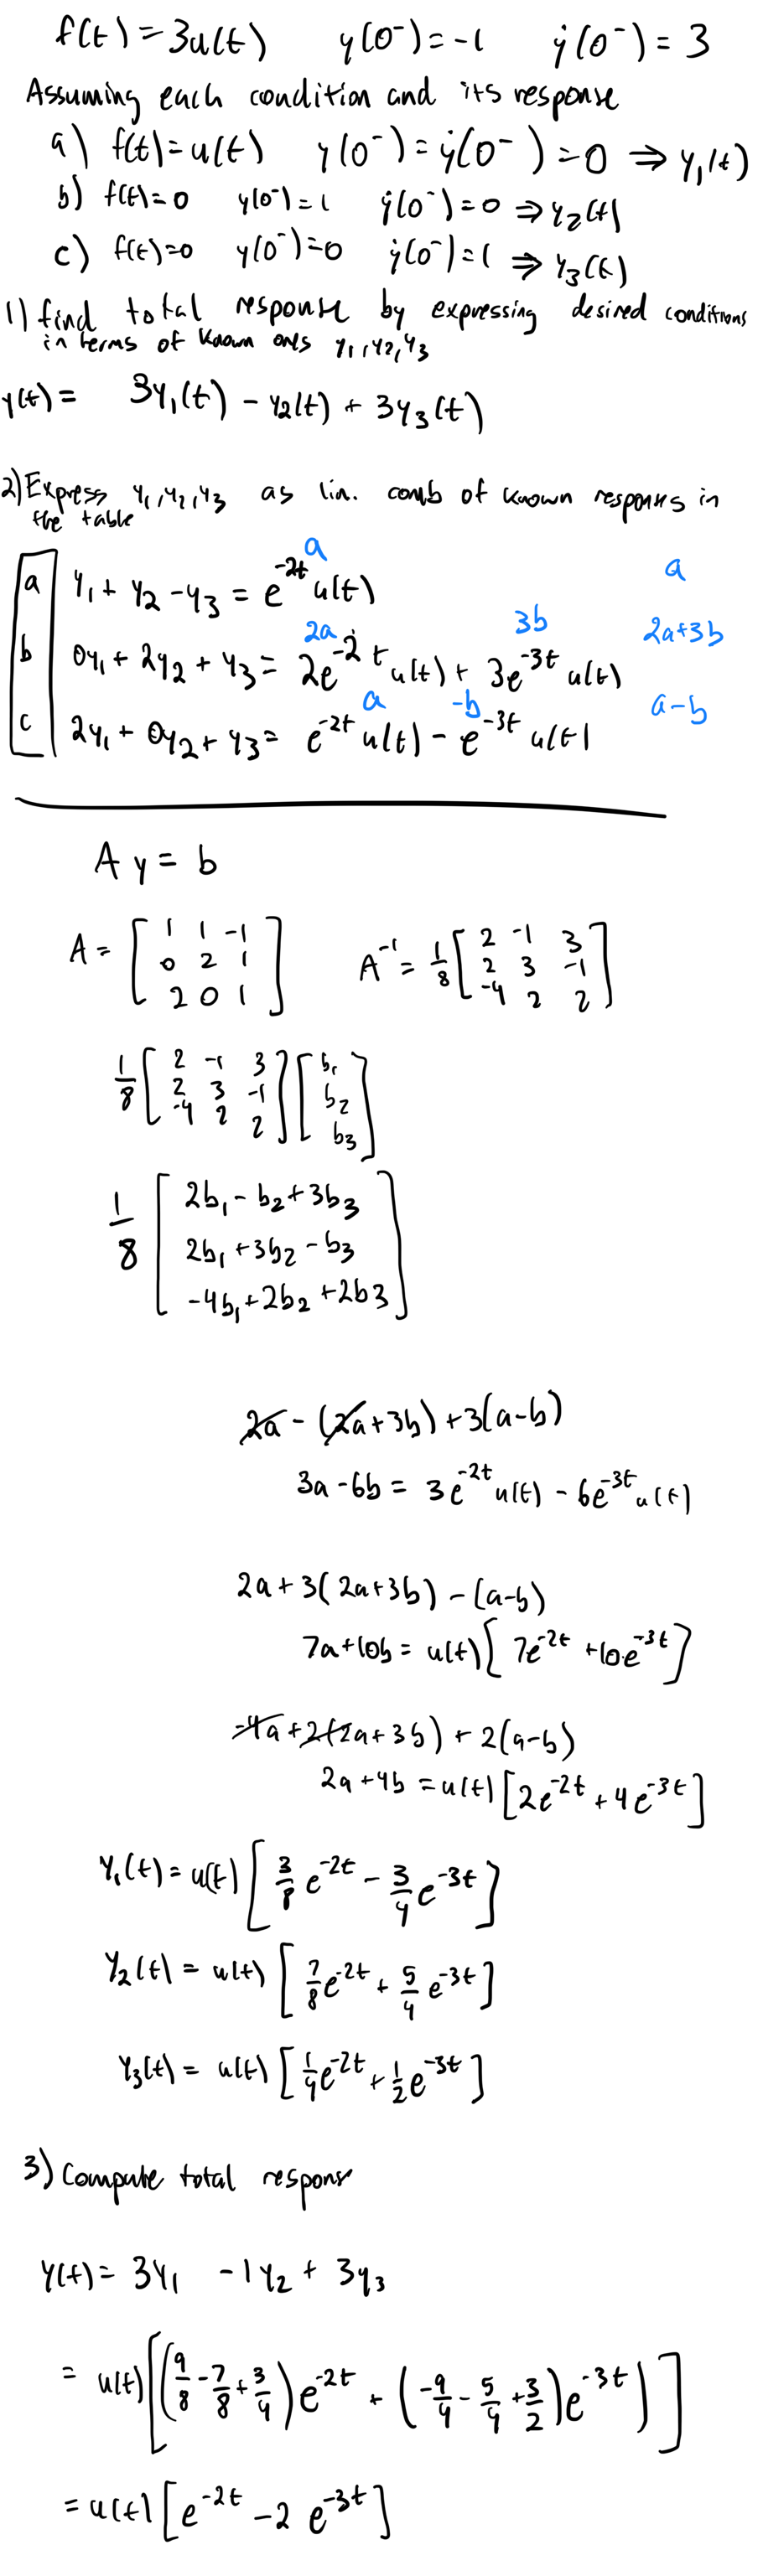 f(t) = 3u(t) y(0⁻) = -1 ẏ(0⁻) = 3
Assuming each condition and its response
a) f(t) = u(t) y(0⁻) = ẏ(0⁻) = 0 ⇒ y₁(t)
b) f(t) = 0 y(0⁻) = 1 ẏ(0⁻) = 0 ⇒ y₂(t)
c) f(t) = 0 y(0⁻) = 0 ẏ(0⁻) = 1 ⇒ y₃(t)
1) find total response by expressing desired conditions
in terms of known ones y₁, y₂, y₃
y(t) = 3y₁(t) - y₂(t) + 3y₃(t)
2) Express y₁, y₂, y₃ as lin. comb of known responses in
the table
a a
a y₁ + y₂ - y₃ = e^{-2t} u(t)
2a 3b 2a+3b
b 0y₁ + 2y₂ + y₃ = 2e^{-2t} u(t) + 3e^{-3t} u(t)
a -b a-b
c 2y₁ + 0y₂ + y₃ = e^{-2t} u(t) - e^{-3t} u(t)
A y = b
A = [1 1 -1; 0 2 1; 2 0 1] A⁻¹ = 1/8 [2 -1 3; 2 3 -1; -4 2 2]
1/8 [2 -1 3; 2 3 -1; -4 2 2] [b₁; b₂; b₃]
1/8 [2b₁ - b₂ + 3b₃
2b₁ + 3b₂ - b₃
-4b₁ + 2b₂ + 2b3]
2a - (2a + 3b) + 3(a-b)
3a - 6b = 3e^{-2t} u(t) - 6e^{-3t} u(t)
2a + 3(2a + 3b) - (a-b)
7a + 10b = u(t)[7e^{-2t} + 10e^{-3t}]
-4a + 2(2a + 3b) + 2(a-b)
2a + 4b = u(t)[2e^{-2t} + 4e^{-3t}]
y₁(t) = u(t)[3/8 e^{-2t} - 3/4 e^{-3t}]
y₂(t) = u(t)[7/8 e^{-2t} + 5/4 e^{-3t}]
y₃(t) = u(t)[1/4 e^{-2t} + 1/2 e^{-3t}]
3) Compute total respons
y(t) = 3y₁ - 1y₂ + 3y₃
= u(t)[(9/8 - 7/8 + 3/4)e^{-2t} + (-9/4 - 5/4 + 3/2)e^{-3t})]
= u(t)[e^{-2t} - 2 e^{-3t}]